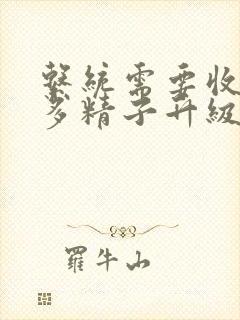 繫統需要收
多精子升級
羅牛山